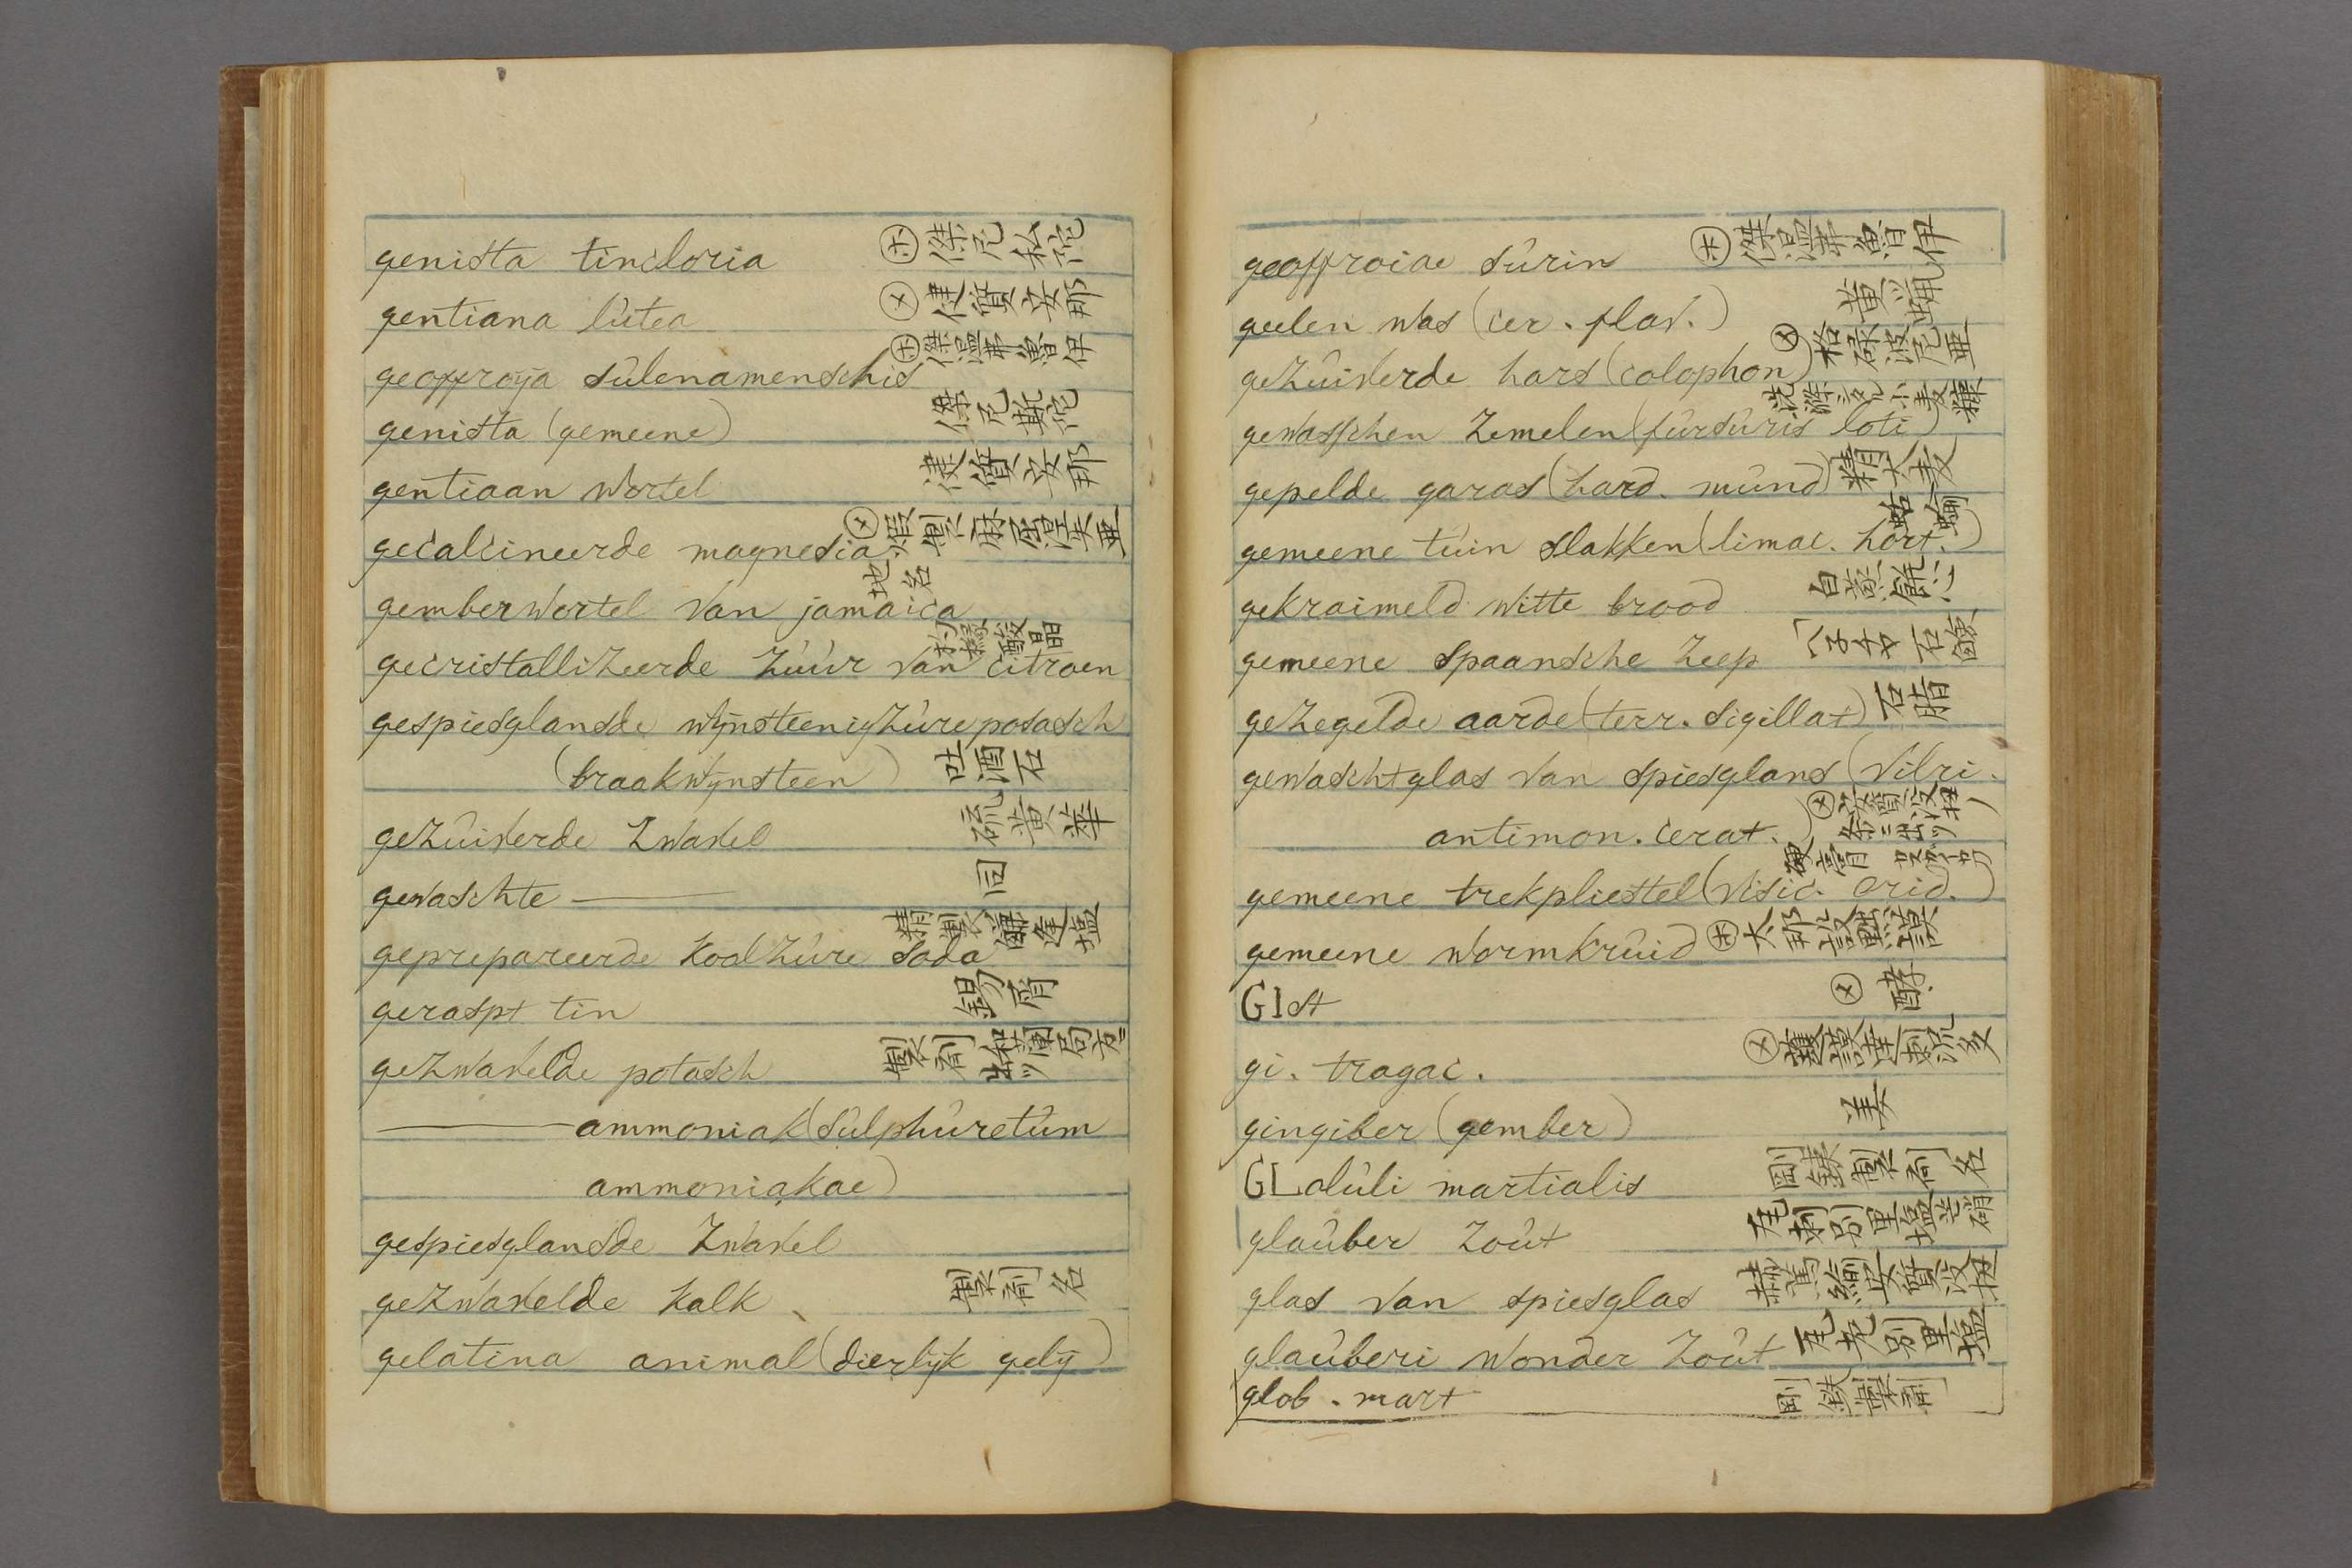 genista tincloria ㋭ 傑尼私荅
gentiana lûtea ㋱ 健質安那
geoffroÿa sûlenamenschis ㋭ 傑湿弗魯伊
genista (gemeene) 傑尼斯荅
gentiaan wortel 健質安那
gecalcineerde magnesia ㋱ 煆製麻屈涅失亜
gemberwortel van jamaica 地名
gecristallizeerde zûûr van citroen 枸櫞酸晶
gespiesglansde wÿnsteenigzûre potasch
(braakwÿnsteen) 吐酒石
gezûiverde zwavel 硫黄華
gewaschte —— 同
geprepareerde koolzûre soda 精製鹻蓬塩
geraspt tin 錫屑
gezwavelde potasch 製剤 和蘭局方ニ出ツ
—— ammoniak (sûlphûretûm
ammoniakae)
gespiesglansde zwavel
gezwavelde kalk 製剤名
gelatina animal (dierlÿk gelÿ)
geoffroiae sûrin ㋭ 傑湿弗魯伊
geelen was (cer. flav.) 黄蝋
gezûiverde hars (colophon) ㋱ 格碌波尼亜
gewasschen zemelen (fûrsûris loti) 小麦
gepelde garas (hard. mûnd) 精大麦
gemeene tûin slakken (limac. hort.) 蛞蝓
gekraimeld witte brood 白蒸餅
gemeene spaansche zeep 石鹸
gezegelde aarde (terr. sigillat) 石脂
gewascht glas van spiesglans (vilri.
antimon. cerat.) ㋱
gemeene trekpliestel (visic. orid.) 硬膏
gemeene wormkrûid ㋭
GIst ㋱ 酵
gi. tragac. ㋱
gingiber (gember) 姜
GLolûli martialis 剛鉄製剤名
glaûber zoût 芒硝
glas van spiesglas
glaûberi wonder zoût
glob. mart 剛鉄製剤